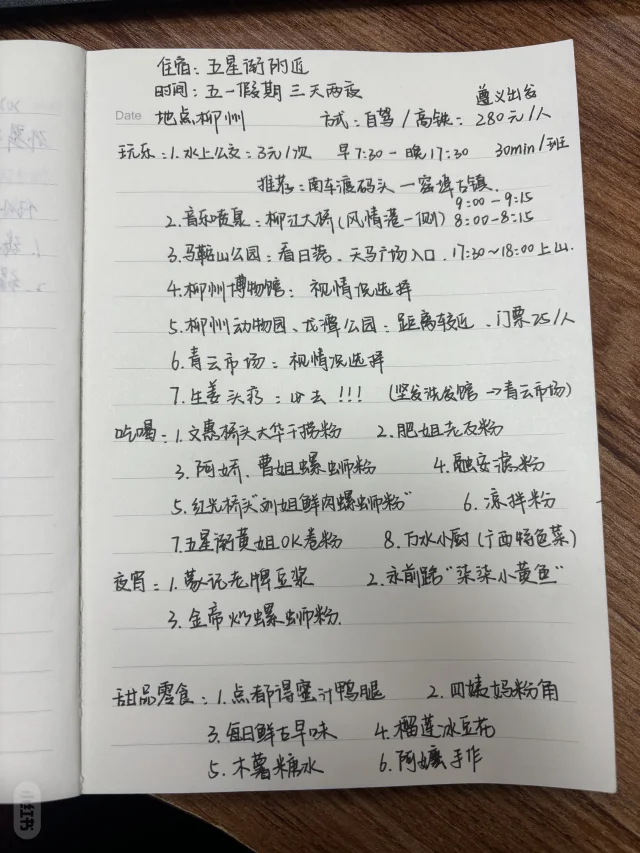 住宿：五星街附近
时间：五一假期 三天两夜
遵义出发
Date 地点：柳州 方式：自驾/高铁：280元/人
玩乐：1.水上公交：3元/次 早7:30-晚17:30 30min/班
推荐：南车渡码头—窑埠古镇
9:00-9:15
2.音乐喷泉：柳江大桥(风情港一侧) 8:00-8:15
3.马鞍山公园：看日落、天马广场入口、17:30~18:00上山.
4.柳州博物馆：视情况选择
5.柳州动物园、龙潭公园：距离较近、门票25/人
6.青云市场：视情况选择
7.生姜头疗：必去!!! (坚发洗发馆→青云市场)
吃喝：1.文惠桥头大华干捞粉 2.肥姐老友粉
3.阿娇、曹姐螺蛳粉 4.融安滚粉
5.红光桥头"刘姐鲜肉螺蛳粉" 6.凉拌粉
7.五星街黄姐OK卷粉 8.万水小厨(广西特色菜)
夜宵：1.蒙记老牌豆浆 2.永前路"柒柒小黄色"
3.金帝炒螺蛳粉.
甜品零食：1.点都得蜜汁鸭腿 2.四姨妈粉角
3.每日鲜古早味 4.榴莲冰豆花
5.木薯糖水 6.阿嬷手作
小红书